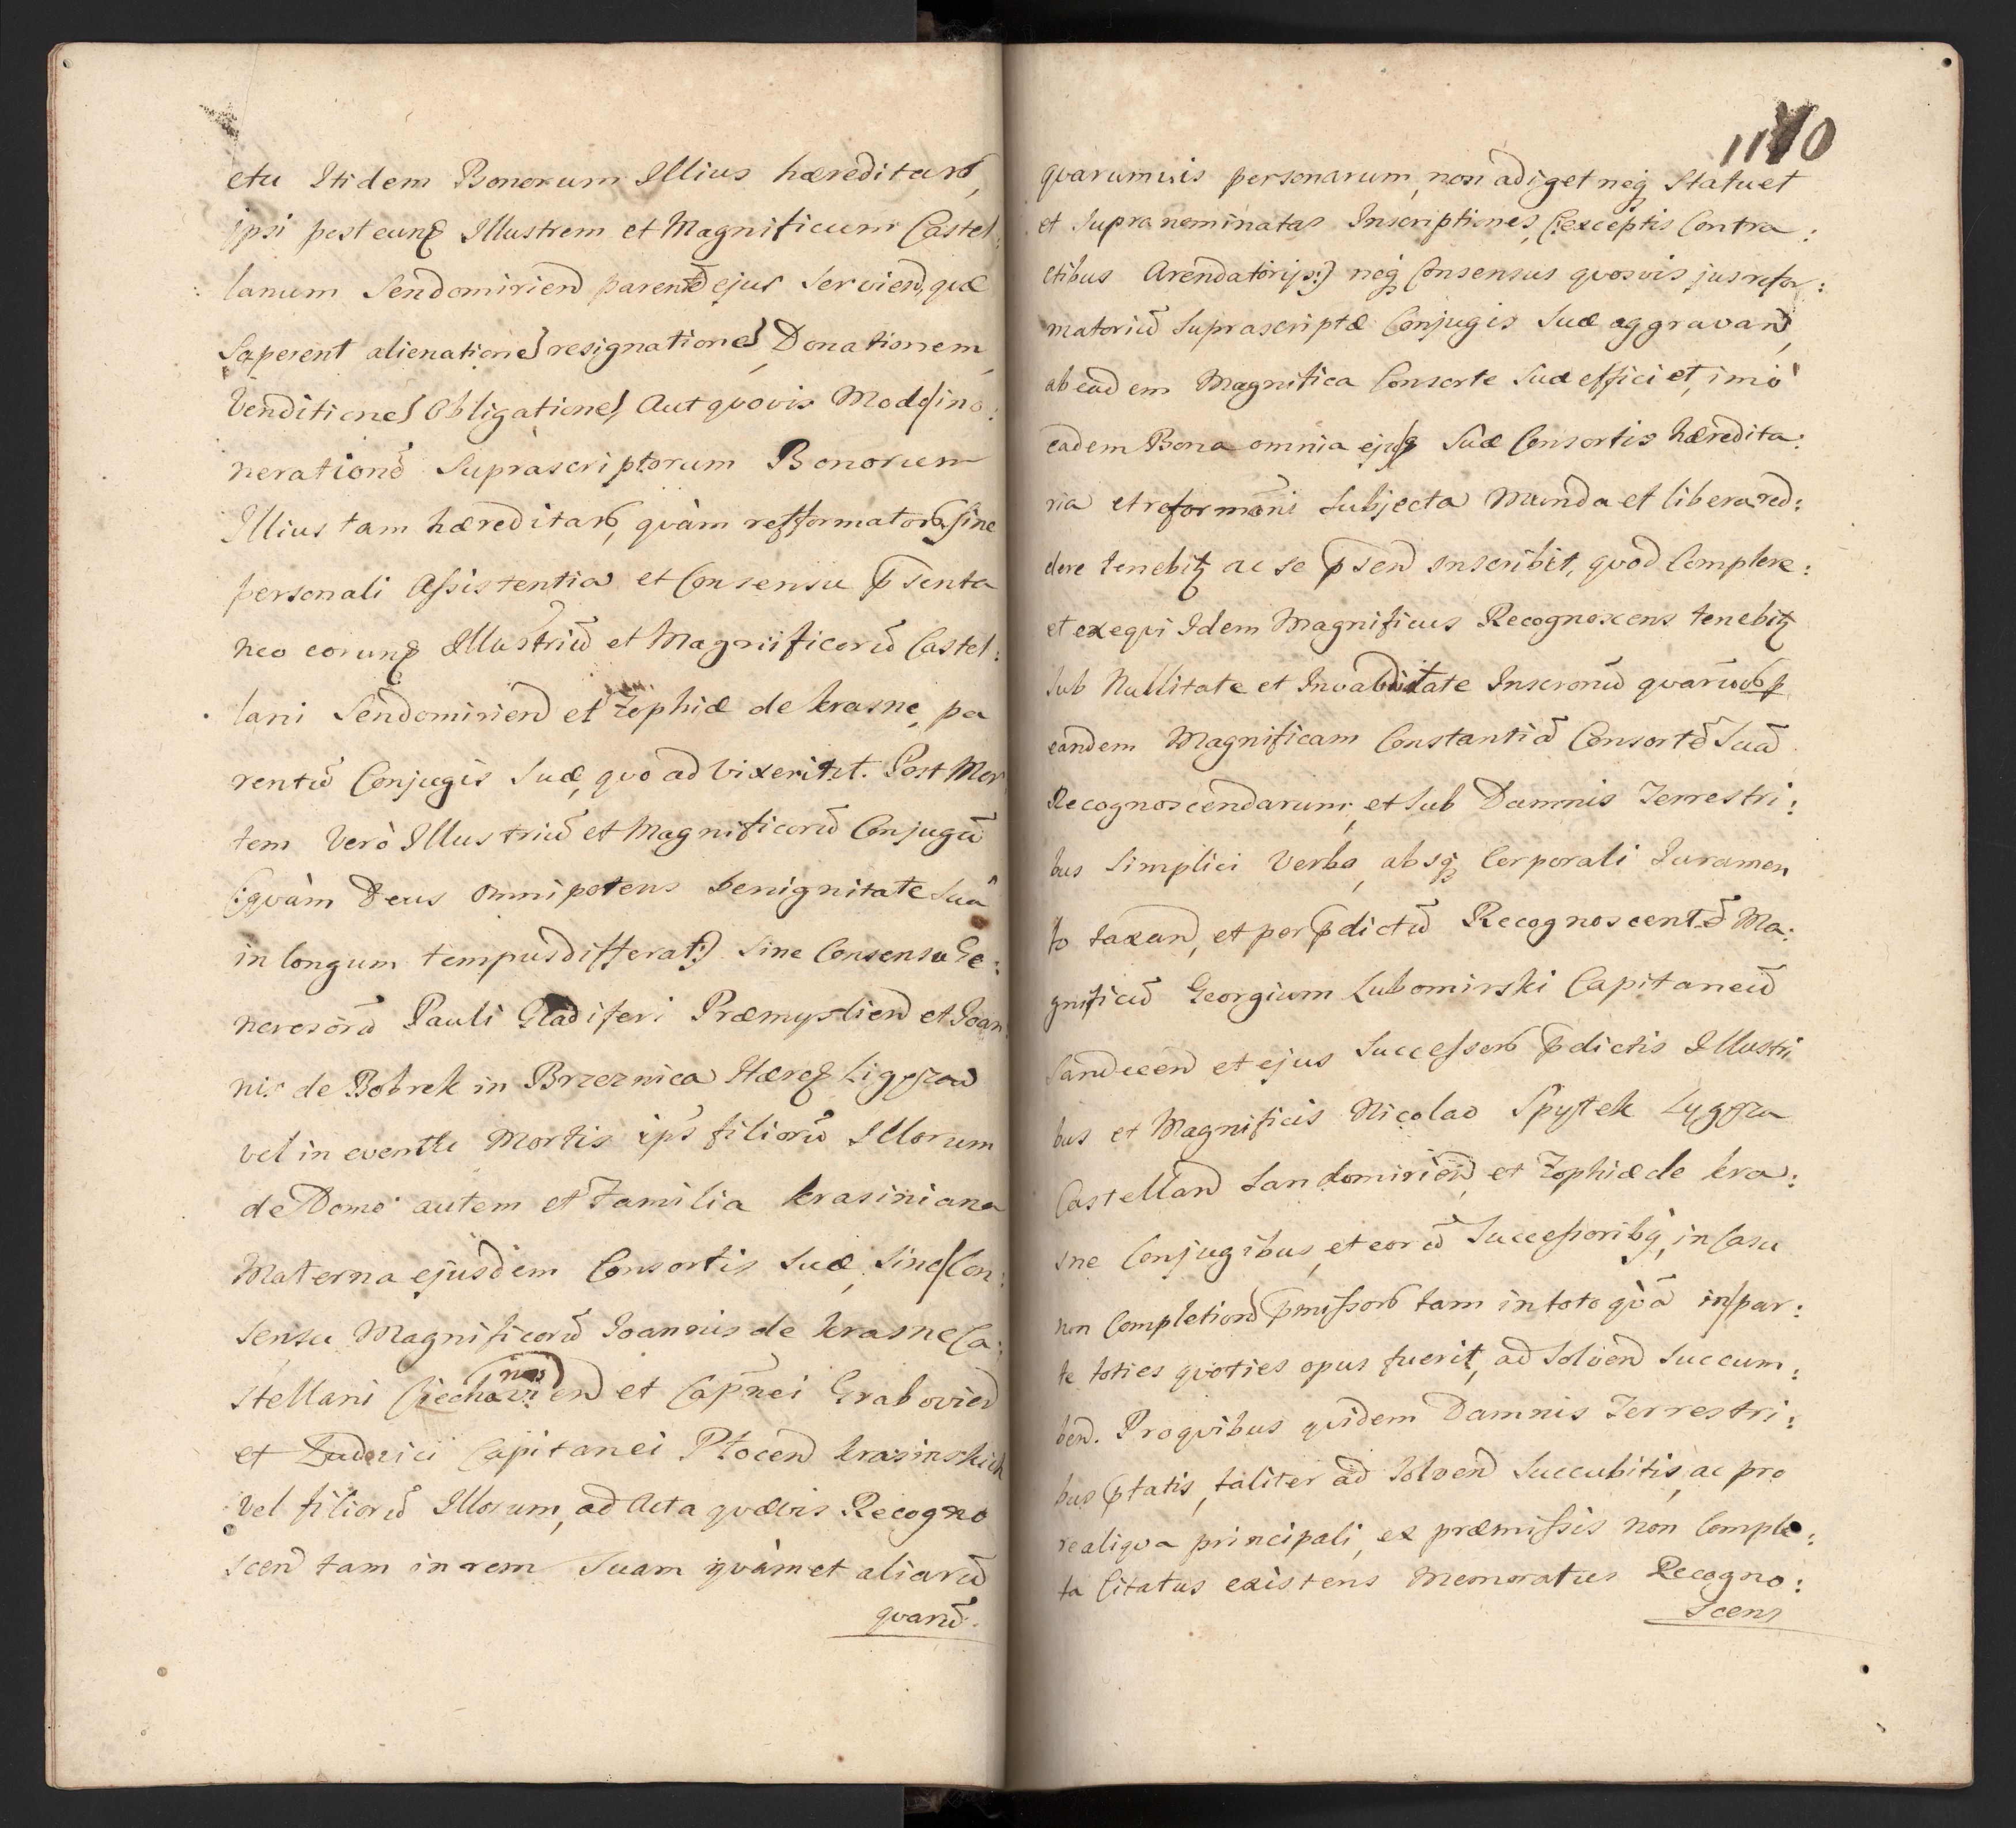 etu Itidem Bonorum Illius hæreditarő,
ipsi post eunꝗ Illustrem et Magnificum Castel:
lanum Sendomirienð parentð ejus Servienð, quæ
Saperent alienationes resignationes, Donationem,
Venditiones Obligationes, Aut quovis Modo ino:
nerationð Supràscriptorum Bonorum
Illius tam hæreditarő, quàm refformatorő, sine
personali Assistentia et Consensu p̄senta
neo eorunꝗ Illustriū et Magnificorū Castel:
lani Sendomirienð et Zophiæ de krasne, pa
rentū Conjugis Suæ, quo ad vixerit et. Post Mor
tem Verò Illustriū et Magnificorū Conjugū
(:quàm Deus Omnipotens benignitate Suâ
in longum tempus differat:) Sine Consensu Ge:
nerosorū Pauli Gladiferi Præmyslienð et Joan
nis de Bobrek in Brzeznica Hæreꝗ Ligęzow
vel in eventu Mortis ips̄ filiorū Illorum
de Domo autem et Familia krasiniana
Materna ejusdem Consortis Suæ, Sine Con:
sensu Magnificorū Joannis de krasne Ca:
nov
stellani Ciechavienð et Cap̄nei Grabovienð
et Ludovici Capitanei Płocenð krasinskich
Vel filiorū Illorum, ad Acta quævis Recogno
scenð tam in rem Suam quàm et aliarū
quarū.
1170
quarumvis personarum, non adiget neqꝫ Statuet
et Supra nominatas Inscriptiones, (:exceptis Contra:
ctibus Arendatorijs:) neqꝫ Consensus quosvis jus refor:
matoriū Suprascriptæ Conjugis Suæ aggravanð,
ab eadem Magnifica Consorte Sua efficiet, imò
eadem Bona omnia ejusꝗ Suæ Consortis hæredita:
ria et reformōni Subjecta Munda et libera red:
dere tenebitꝫ ac se p̄senð inscribit, quod Complere:
et exequi Idem Magnificus Recognoscens tenebitꝫ
Sub Nullitate et Invaliditate Inscronū quarūvis ꝑ
eandem Magnificam Constantiā Consortē Suā
Recognoscendarum, et Sub Damnis Terrestri:
bus Simplici Verbo, absqꝫ Corporali Juramen
to taxanð, et per p̄dictū Recognoscentē Ma:
gnificū Georgium Lubomirski Capitaneū
Sandecenð et ejus Successorő p̄dictis Illustri
bus et Magnificis Nicolao Spytek Lygęza
Castellanð Sandomirienð, et Zophiæ de kra:
sne Conjugibus, et eorū Successoribꝗ, in Casu
non Completionð p̄missorő tam in toto qvā in par:
te toties quoties opus fuerit, ad Solvenð Succum:
benð. Pro quibus quidem Damnis Terrestri:
bus p̄tatis, taliter ad Solvenð Succubitis, ac pro
re aliqua principali, ex præmissis non Comple:
ta Citatus existens Memoratus Recogno:
Scens